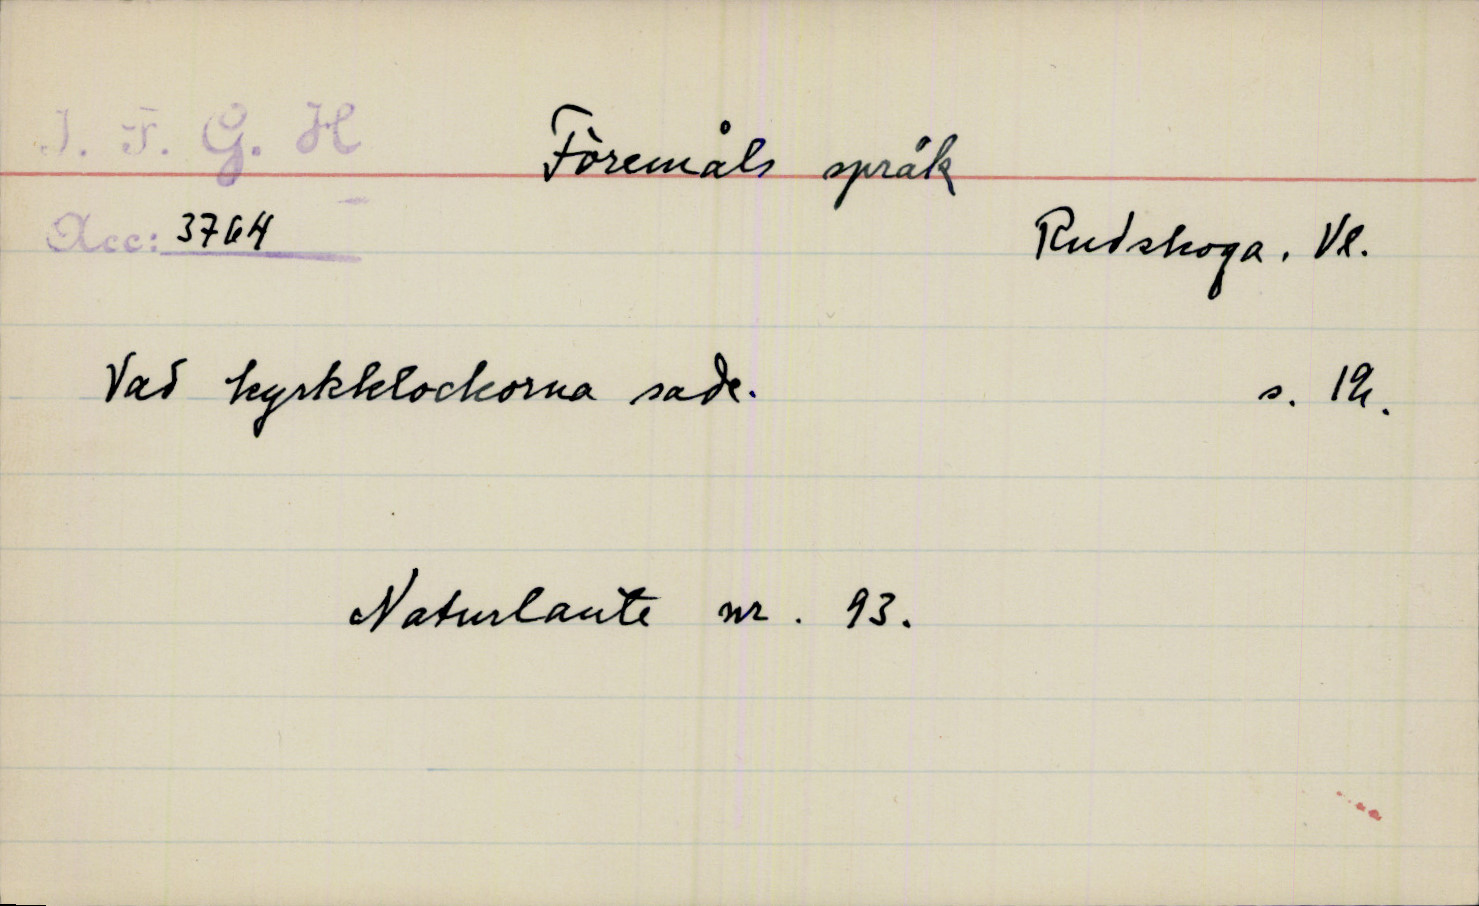 I. F. G. H
Föremåls språk
Acc: 3764
Rudskoga. Vl.
Vad kyrkklockorna sade. s. 12.
Naturlaute nr. 93.